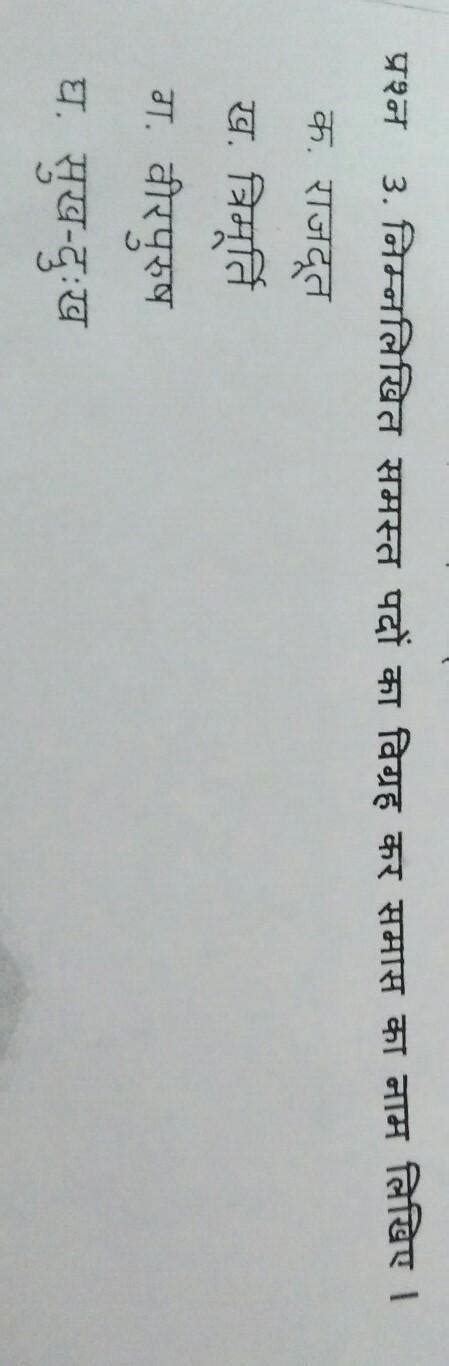 प्रश्न 3. निम्नलिखित समस्त पदों का विग्रह कर समास का नाम लिखिए ।
क. राजदूत
ख. त्रिमूर्ति
ग. वीरपुरुष
घ. सुख-दुःख